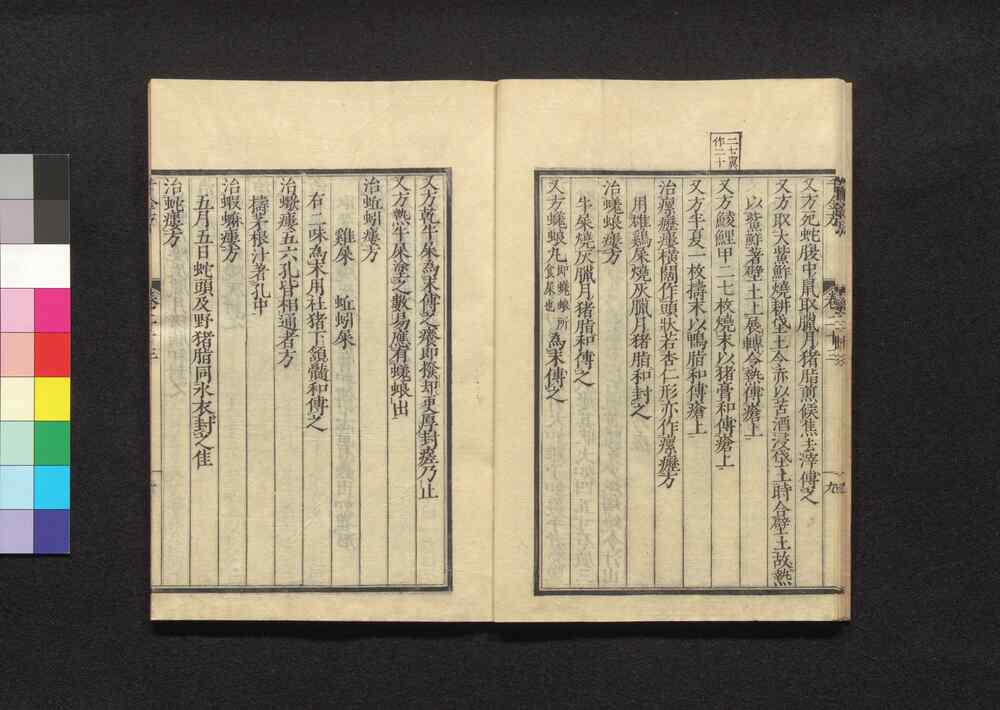 二七翼
作二十
又方死蛇腹中鼠取臘月猪脂煎候焦去滓傅之
又方取大鮝鮮燒耕垡土令赤以苦酒浸垡土時合壁土故熱
以鮝鮮著壁土上展轉令熱傅瘡上
又方鯪鯉甲二七枚燒末以猪膏和傅瘡上
又方半夏一枚擣末以鴨脂和傅瘡上
治瘰癧瘻橫闊作頭狀若杏仁形亦作瘰癧方
用雄鷄屎燒灰臘月猪脂和封之
治蜣蜋瘻方
牛屎燒灰臘月猪脂和傅之
又方蜣蜋丸即蜣蜋所食屎也為末傅之
又方乾牛屎為末傅之癢即撥却更厚封瘥乃止
又方熱牛屎塗之數易應有蜣蜋出
治蚯蚓瘻方
雞屎 蚯蚓屎
右二味為末用社猪下頷髓和傅之
治蠍瘻五六孔皆相通者方
擣茅根汁著孔中
治蝦蟆瘻方
五月五日蛇頭及野猪脂同水衣封之佳
治蛇瘻方